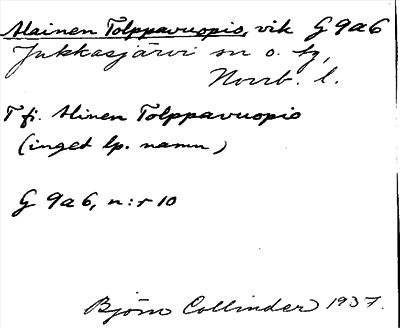 Alainen Tolppavuopio, vik G 9a6
Jukkasjärvi sn o. hg,
Norrb. l.
T fi. Alinen Tolppavuopio
(inget lp. namn)
G 9a6, n:r 10
Björn Collinder 1937.